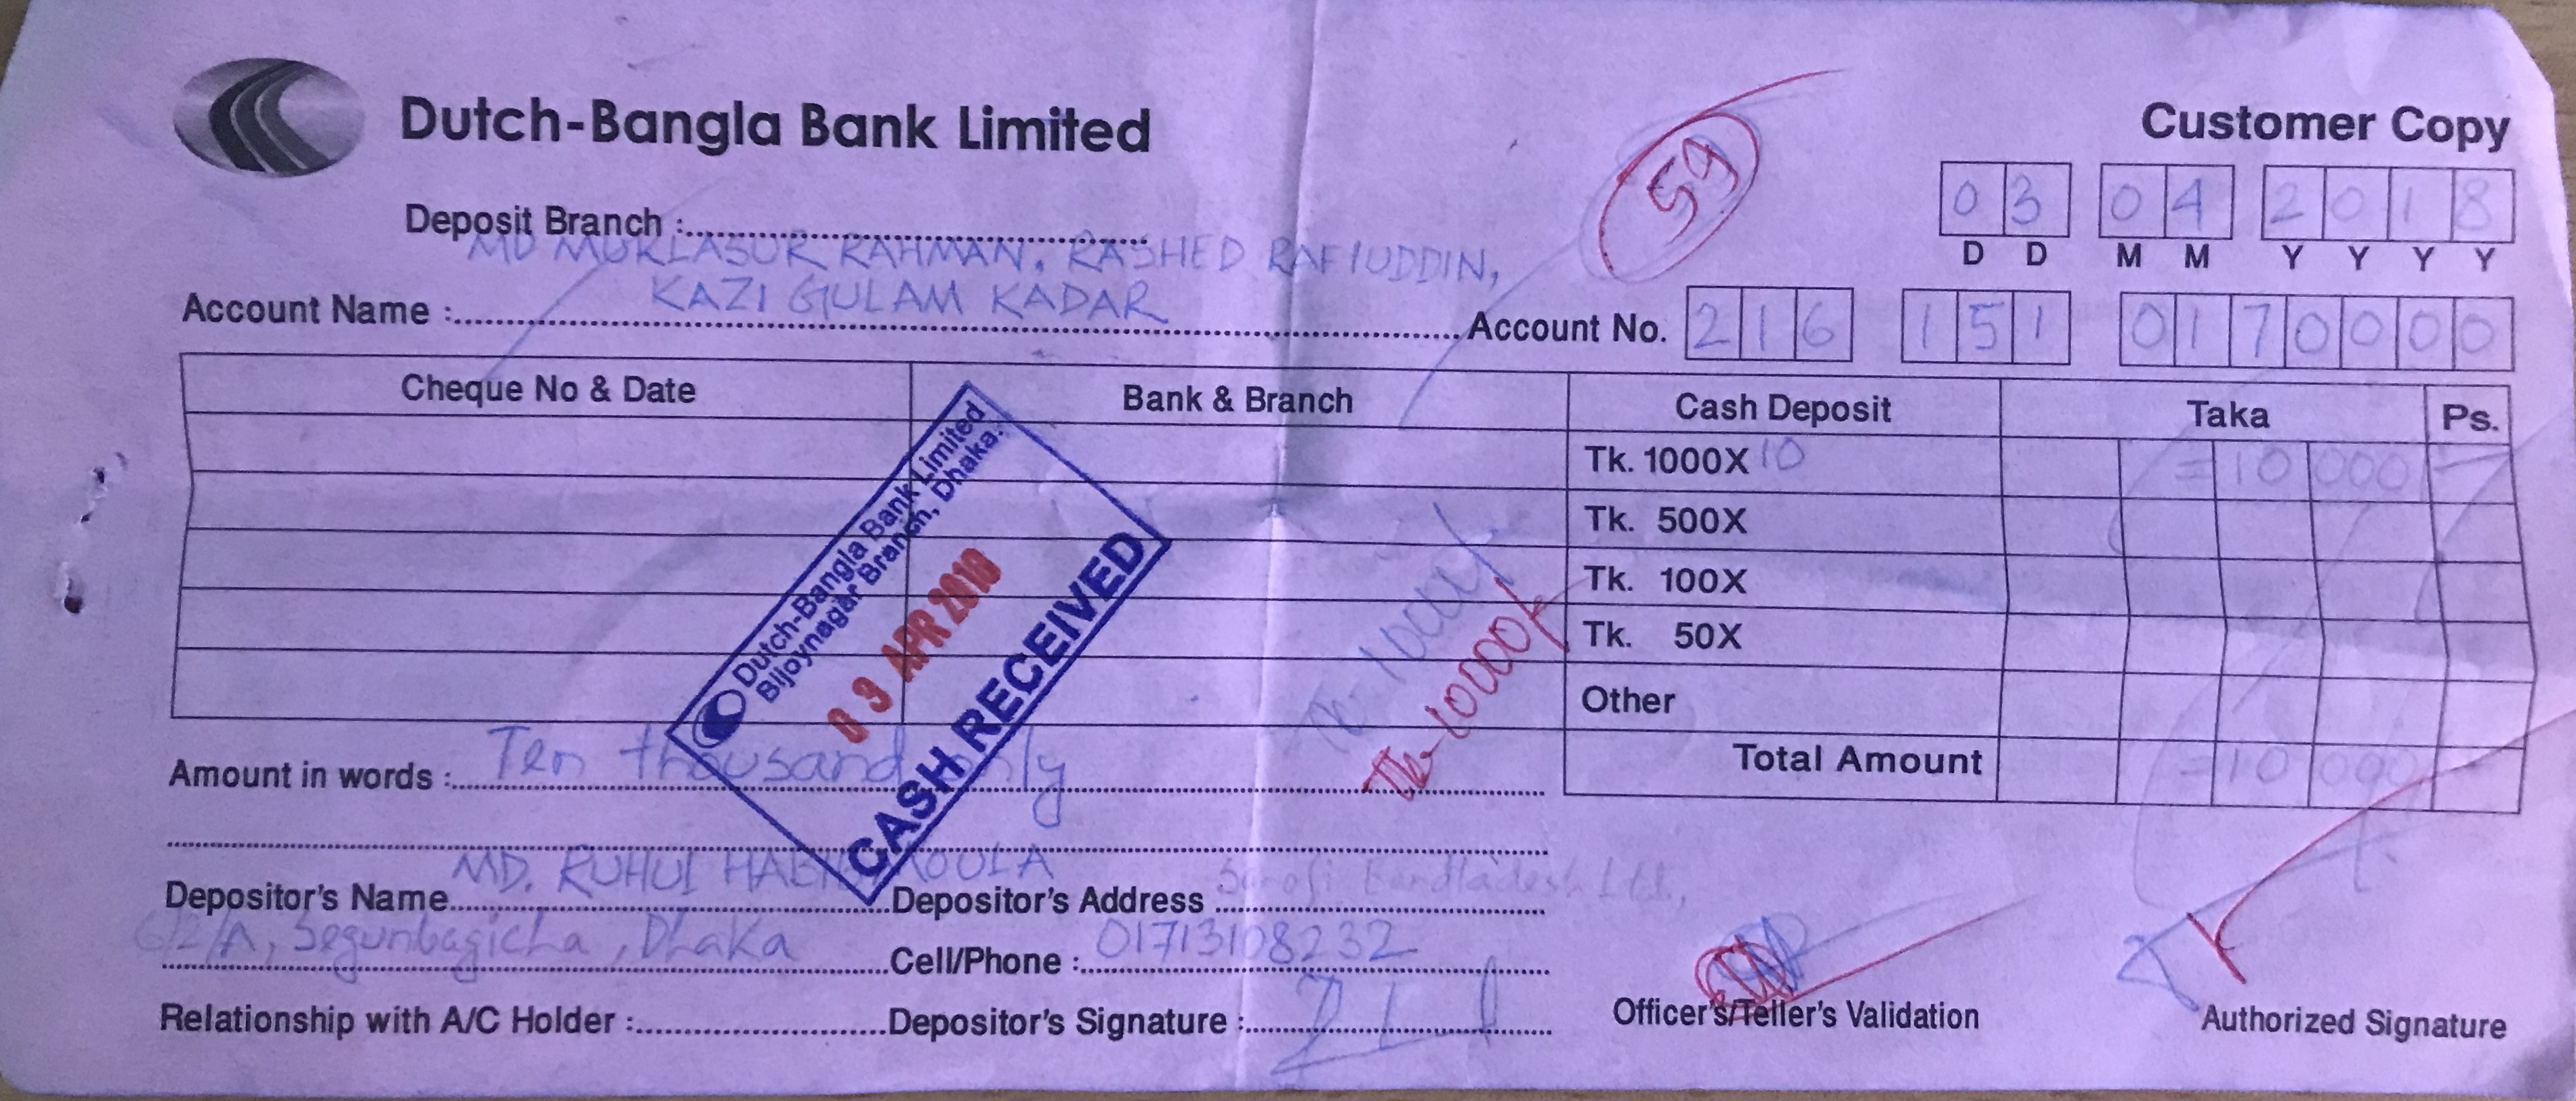 Dutch-Bangla Bank Limited
Customer Copy
59
03 04 2018
D D M M Y Y Y Y
Deposit Branch :
MD MUKLASUR RAHMAN, RASHED RAFIUDDIN,
KAZI GULAM KADAR
Account Name :
Account No. 216 151 0170000
Cheque No & Date Bank & Branch Cash Deposit Taka Ps.
Tk. 1000X 10 =10 000
Tk. 500X
Tk. 100X
Tk. 50X
Other
Total Amount =10 000
Dutch-Bangla Bank Limited
Bijoynagar Branch, Dhaka.
03 APR 2018
CASH RECEIVED
Tk-10000/-
Tk-10000/-
Amount in words : Ten thousand only
Depositor's Name MD. RUHUL Depositor's Address Bangladesh Ltd.,
6/2/A, Segunbagicha, Dhaka Cell/Phone : 01713108232
Relationship with A/C Holder : Depositor's Signature :
Officer's/Teller's Validation
Authorized Signature